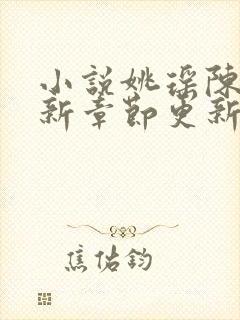 小説姚瑶陳
新章節更新
焦佑鈞